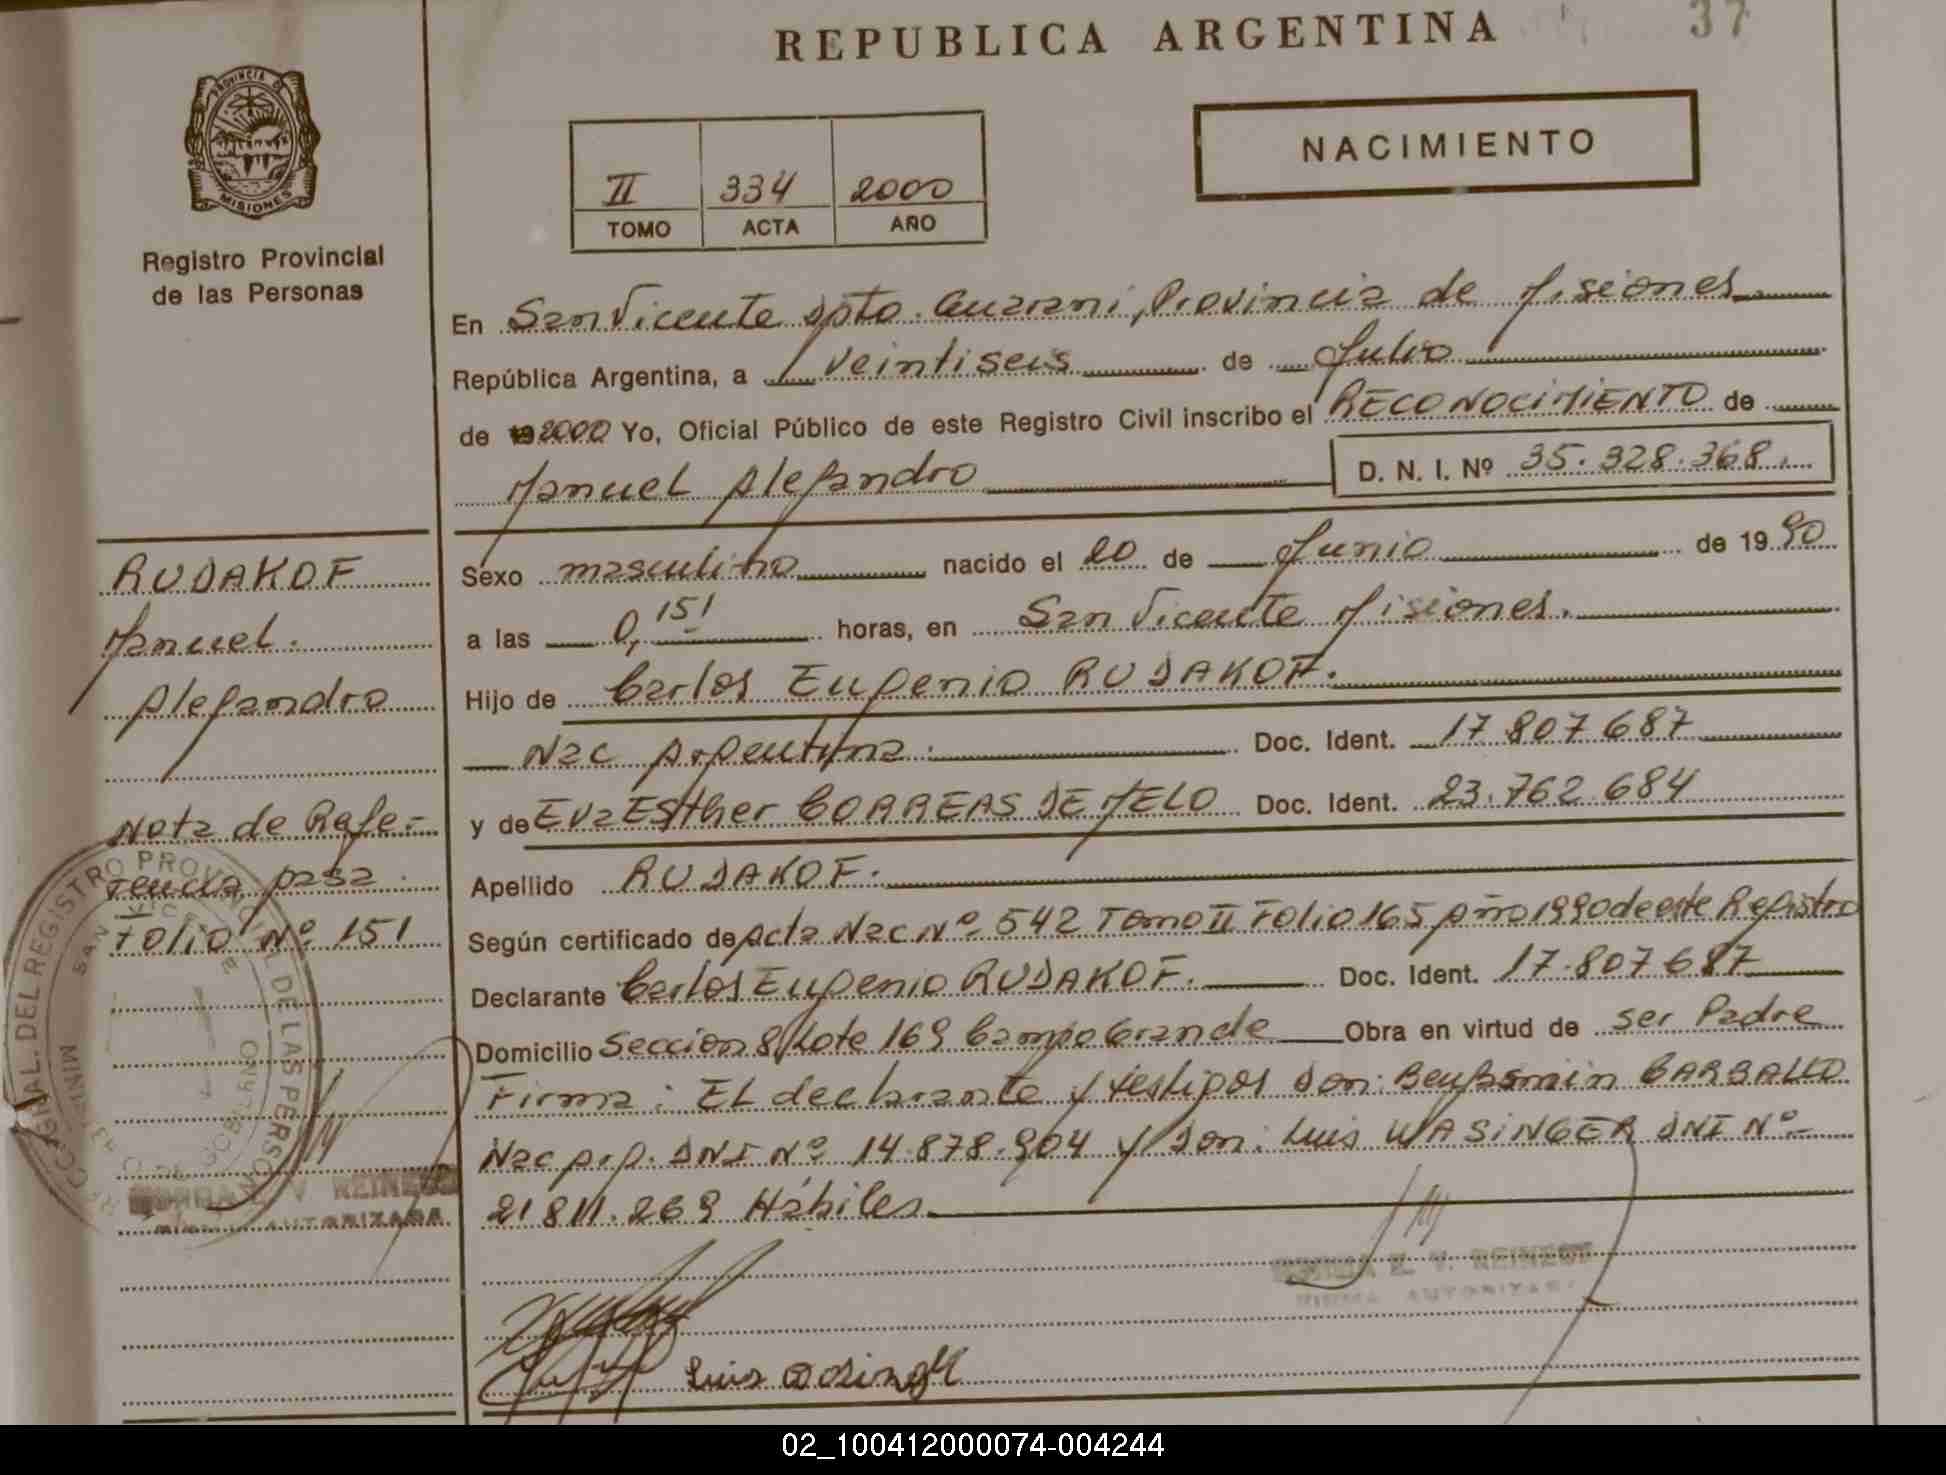 REPUBLICA ARGENTINA
37
PROVINCIA DE
MISIONES
Registro Provincial
de las Personas
II 334 2000
TOMO ACTA AÑO
NACIMIENTO
En San Vicente Dpto. Guarani, Provincia de Misiones
República Argentina, a veintiseis de Julio
de 2000 Yo, Oficial Público de este Registro Civil inscribo el RECONOCIMIENTO de
Manuel Alejandro D. N. I. Nº 35.328.368.
Sexo masculino nacido el 20 de Junio de 19 90
a las 0,15' horas, en San Vicente Misiones.
Hijo de Carlos Eugenio RUDAKOF.
Nac Argentina. Doc. Ident. 17.807.687
y de Eva Esther CORREAS DE MELO Doc. Ident. 23.762.684
Apellido RUDAKOF.
Según certificado de Acta Nac Nº 542 Tomo II Folio 165 Año 1990 de este Registro
Declarante Carlos Eugenio RUDAKOF. Doc. Ident. 17.807.687
Domicilio Seccion 8 Lote 169 Campo Grande Obra en virtud de ser Padre
Firma: El declarante y testigos Don: Benjamin CARBALLO
Nac Arg. DNI Nº 14.878.904 y Don: Luis WASINGER DNI Nº
21811.269 Hábiles
RUDAKOF
Manuel.
Alejandro
Nota de Refe-
rencia pasa
Folio Nº 151
DEL REGISTRO PROVINCIAL DE LAS PERSONAS
SAN VICENTE
V. REINERT
FIRMA AUTORIZADA
Z. V. REINERT
FIRMA AUTORIZADA
Luis
02_100412000074-004244